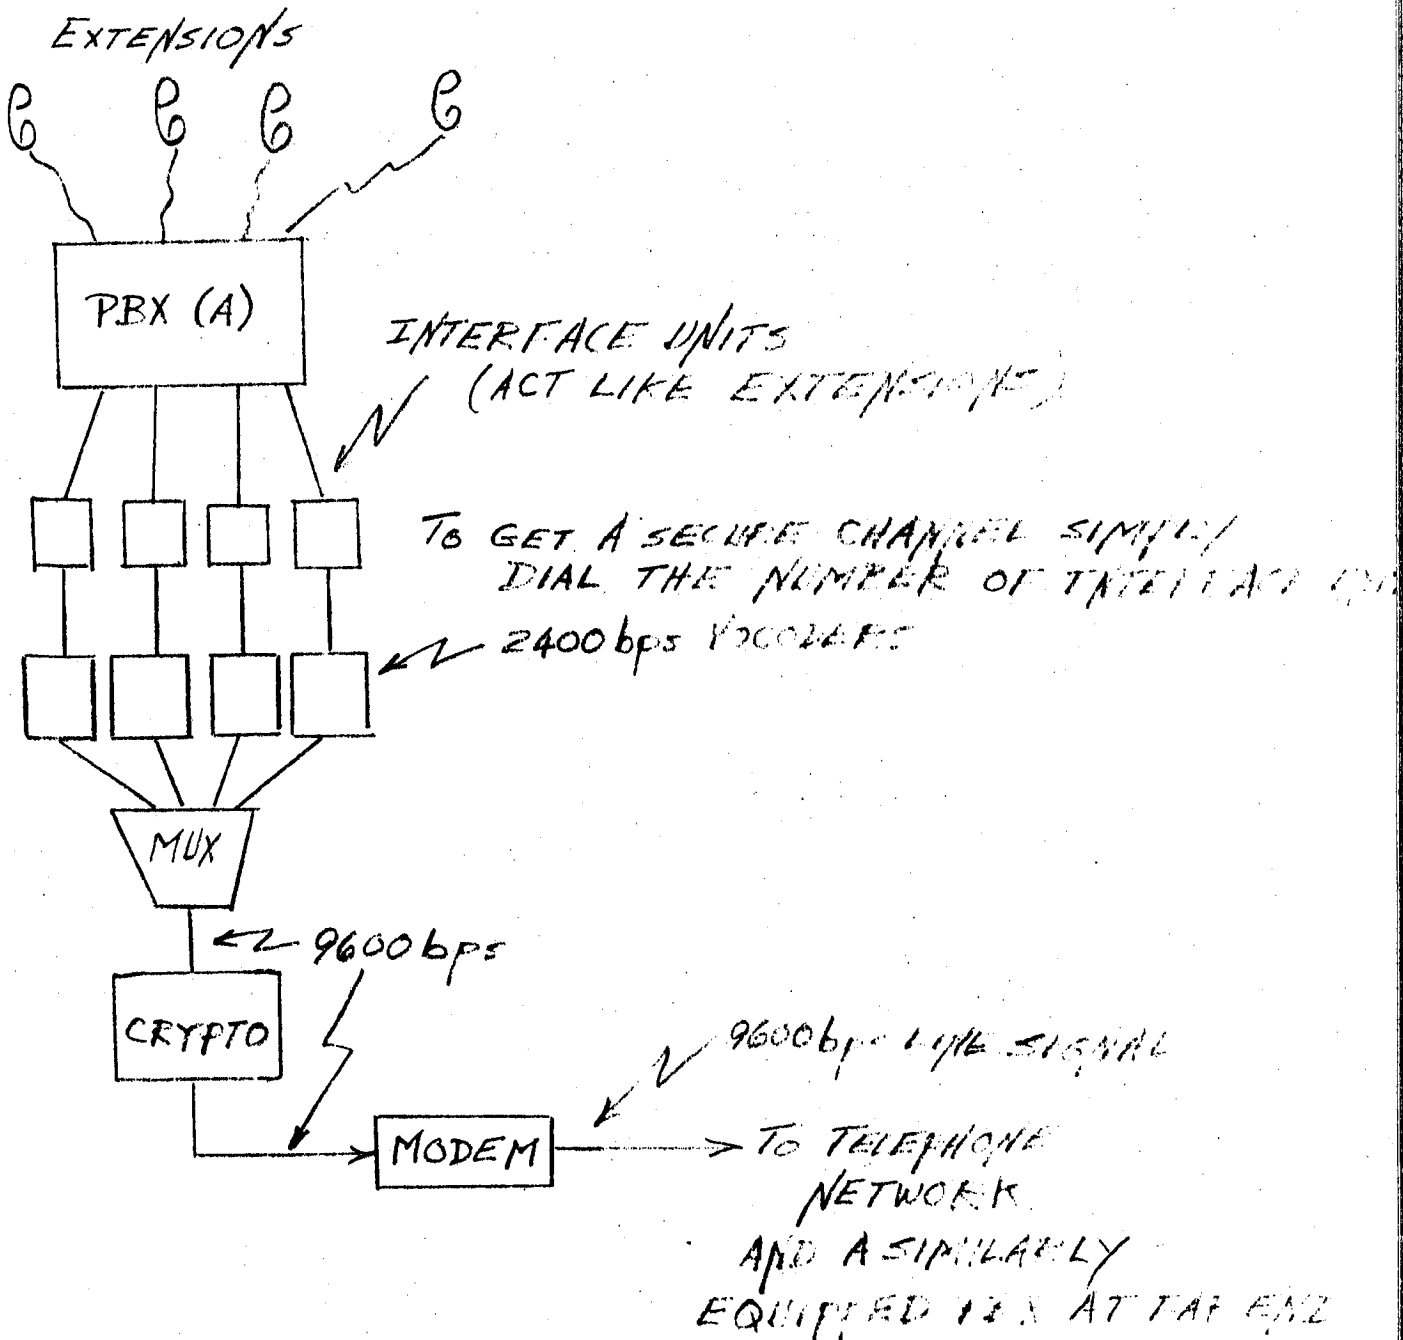 EXTENSIONS
PBX (A)
INTERFACE UNITS
(ACT LIKE EXTENSIONS)
TO GET A SECURE CHANNEL SIMPLY
DIAL THE NUMBER OF INTERFACE
2400 bps VOCODERS
MUX
9600 bps
CRYPTO
9600 bps LINE SIGNAL
MODEM
TO TELEPHONE
NETWORK
AND A SIMILARLY
EQUIPPED PBX AT FAR END